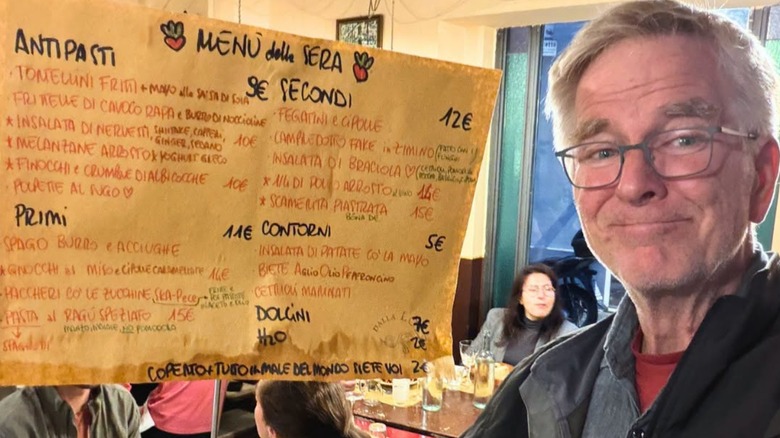 MENÙ della SERA
ANTIPASTI 9€
· TOMELLINI FRITI + MAYO alla SALSA DI SOIA
· FRITTELLE DI CAVOLO RAPA e BURRO DI NOCCIOLINE
* INSALATA DI NERVETTI, SHIITAKE, CAPPERI, GINGER, SEDANO 10€
* MELANZANE ARROSTO * YOGHURT GRECO
* FINOCCHI e CRUMBLE DI ALBICOCCHE 10€
POLPETTE AL SUGO ♡
PRIMI 11€
SPAGO BURRO e ACCIUGHE
* GNOCCHI al MISO e CIPOLLE CARAMELLATE 14€
· PACCHERI CO' LE ZUCCHINE,
· PASTA AL RAGÙ SPEZIATO 15€
MANZO, MAIALE, NO POMODORO
SECONDI 12€
· FEGATINI e CIPOLLE
· CAMPLEDOTTO FAKE in ZIMINO
· INSALATA DI BRACIOLA ♡
* 1/4 DI POLLO ARROSTO 14€
* SCAMERITA PIASTRATA 15€
CONTORNI 5€
INSALATA DI PATATE CO' LA MAYO
BIETE AGLIO OLIO PEPERONCINO
CETRIOLI MARINATI
DOLCINI 7€
H2O 2€
COPERTO + TUTTO IL MALE DEL MONDO SIETE VOI 2€